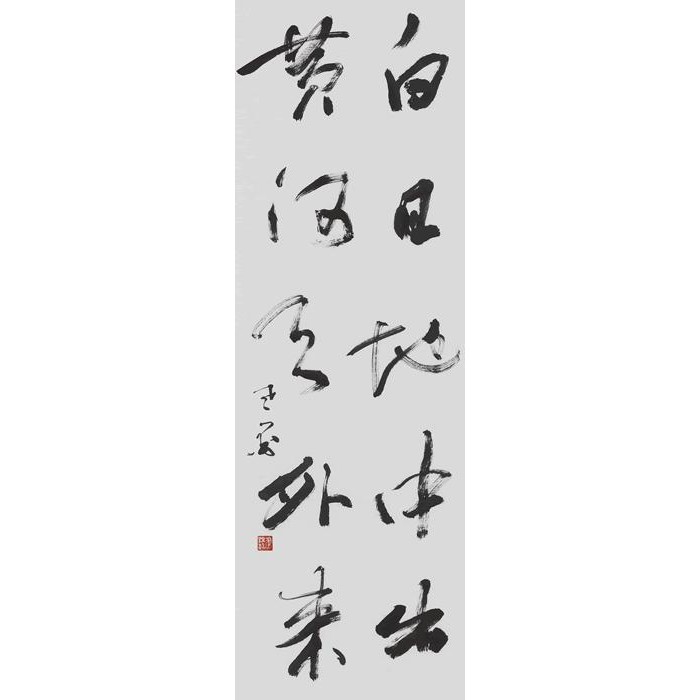 白日地中出
黄河天外来